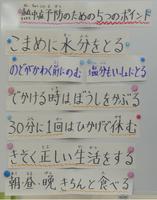 熱中症予防のための5つのポイント
こまめに水分をとる
のどがかわく前にのむ 塩分もいっしょにとる
でかける時はぼうしをかぶる
30分に1回はひかげで休む
きそく正しい生活をする
朝・昼・晩 きちんと食べる